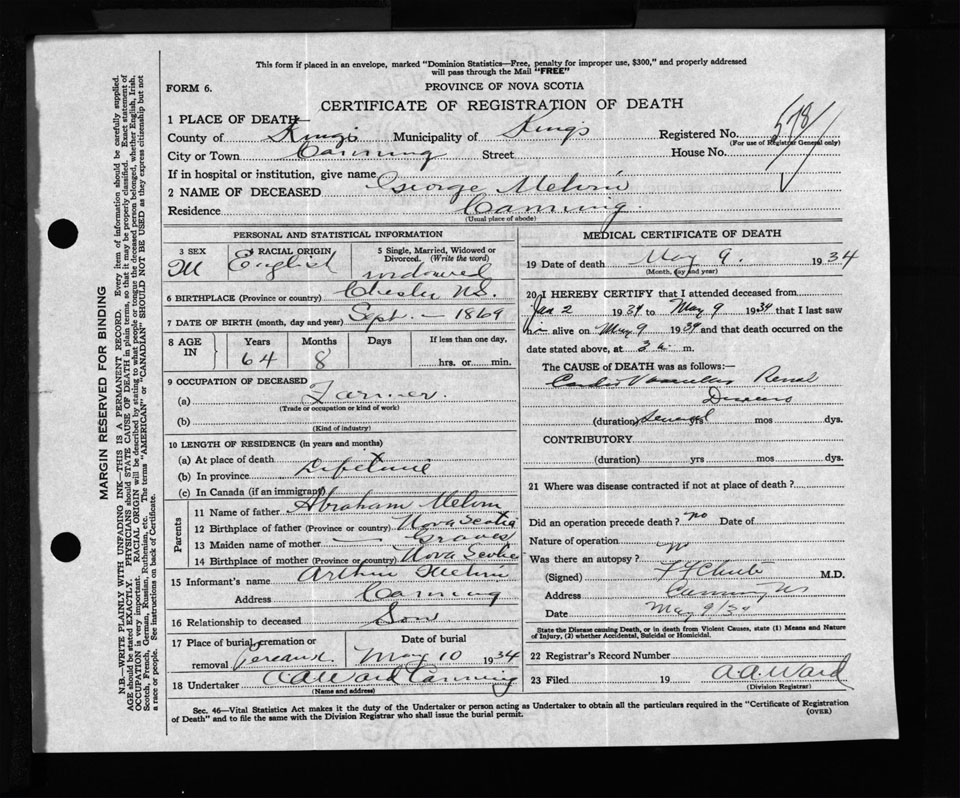 This form if placed in an envelope, marked "Dominion Statistics—Free, penalty for improper use, $300," and properly addressed
will pass through the Mail "FREE"
FORM 6.
PROVINCE OF NOVA SCOTIA
CERTIFICATE OF REGISTRATION OF DEATH
1 PLACE OF DEATH—
County of Kings Municipality of Kings Registered No. 578
(For use of Registrar General only)
City or Town Canning Street House No.
If in hospital or institution, give name
2 NAME OF DECEASED George Melvin
Residence Canning.
(Usual place of abode)
PERSONAL AND STATISTICAL INFORMATION
3 SEX M
4 RACIAL ORIGIN English
5 Single, Married, Widowed or Divorced. (Write the word) widowed
6 BIRTHPLACE (Province or country) Chester N.S.
7 DATE OF BIRTH (month, day and year) Sept. — 1869
8 AGE IN Years 64 Months 8 Days If less than one day, hrs. or min.
9 OCCUPATION OF DECEASED
(a) Farmer.
(Trade or occupation or kind of work)
(b)
(Kind of industry)
10 LENGTH OF RESIDENCE (in years and months)
(a) At place of death
(b) In province Lifetime
(c) In Canada (if an immigrant)
Parents
11 Name of father Abraham Melvin
12 Birthplace of father (Province or country) Nova Scotia
13 Maiden name of mother — Graves
14 Birthplace of mother (Province or country) Nova Scotia
15 Informant's name Arthur Melvin
Address Canning
16 Relationship to deceased Son
17 Place of burial, cremation or removal Pereaux. Date of burial May 10 1934
18 Undertaker A A Ward Canning
(Name and address)
MEDICAL CERTIFICATE OF DEATH
19 Date of death May 9. 1934
(Month, day and year)
20 I HEREBY CERTIFY that I attended deceased from
Jan 2 1934 to May 9 1934 that I last saw
him alive on May 9 1934 and that death occurred on
date stated above, at 3 a. m.
The CAUSE OF DEATH was as follows:—
Cardio Vascular Renal
Disease
(duration) Several yrs mos dys.
CONTRIBUTORY
(duration) yrs mos dys.
21 Where was disease contracted if not at place of death?
Did an operation precede death? no Date of
Nature of operation
Was there an autopsy? no
(Signed) M.D.
Address Canning NS
Date May 9/34
State the Disease causing Death, or in death from Violent Causes, state (1) Means and Nature
of Injury, (2) whether Accidental, Suicidal or Homicidal.
22 Registrar's Record Number
23 Filed 19 A.A. Ward
(Division Registrar)
Sec. 46—Vital Statistics Act makes it the duty of the Undertaker or person acting as Undertaker to obtain all the particulars required in the "Certificate of Registration
of Death" and to file the same with the Division Registrar who shall issue the burial permit.
(OVER)
MARGIN RESERVED FOR BINDING
N.B.—WRITE PLAINLY WITH UNFADING INK—THIS IS A PERMANENT RECORD. Every item of information should be carefully supplied.
AGE should be stated EXACTLY. PHYSICIANS should STATE CAUSE OF DEATH in plain terms, so that it may be properly classified. Exact statement of
OCCUPATION is very important. RACIAL ORIGIN will be described by stating to what people or tongue the deceased person belonged, whether English, Irish,
Scotch, French, German, Russian, Ruthenian, etc. The terms "AMERICAN" or "CANADIAN" SHOULD NOT BE USED as they express citizenship but not
a race or people. See instructions on back of Certificate.